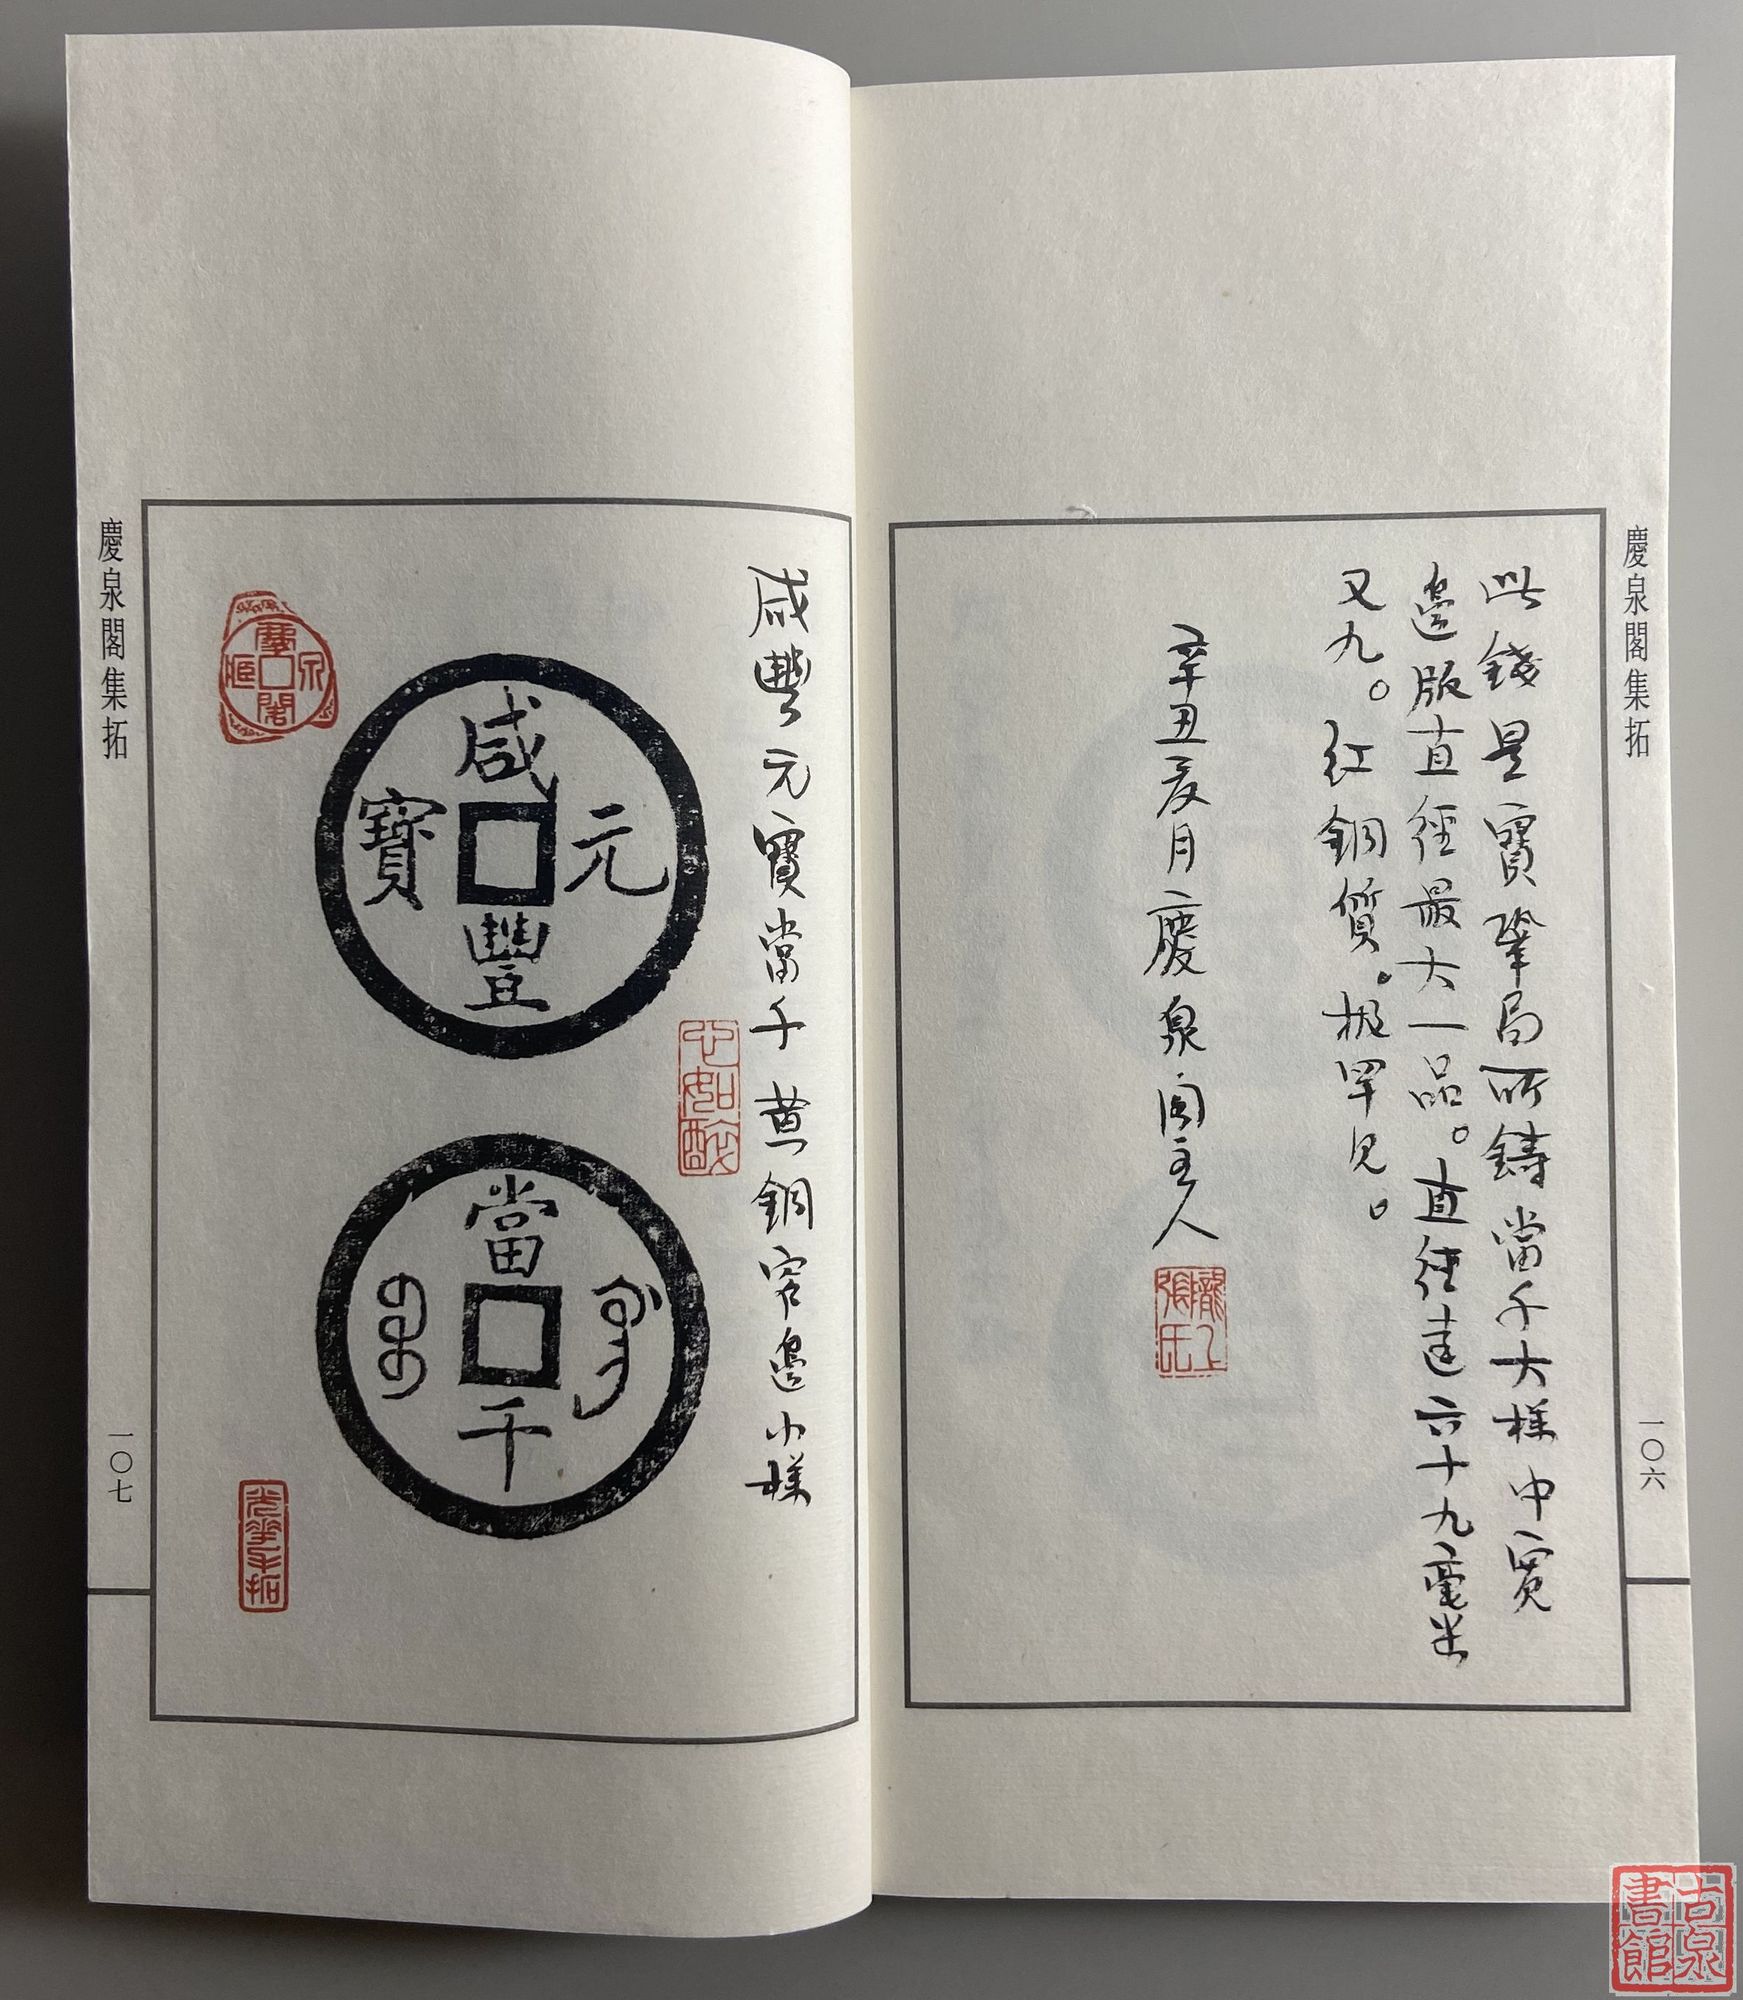 慶泉閣集拓
一〇六
此錢是寶鞏局所鑄當千大樣中寬
邊版直徑最大一品。直徑達六十九毫米
又九。紅銅質。極罕見。
辛丑夏月慶泉閣主人
隴上張氏
慶泉閣集拓
一〇七
咸豐元寶當千黃銅窄邊小樣
咸豐元寶
當千
ᠪᠣᠣ
慶泉閣
心如
手拓
古泉書館